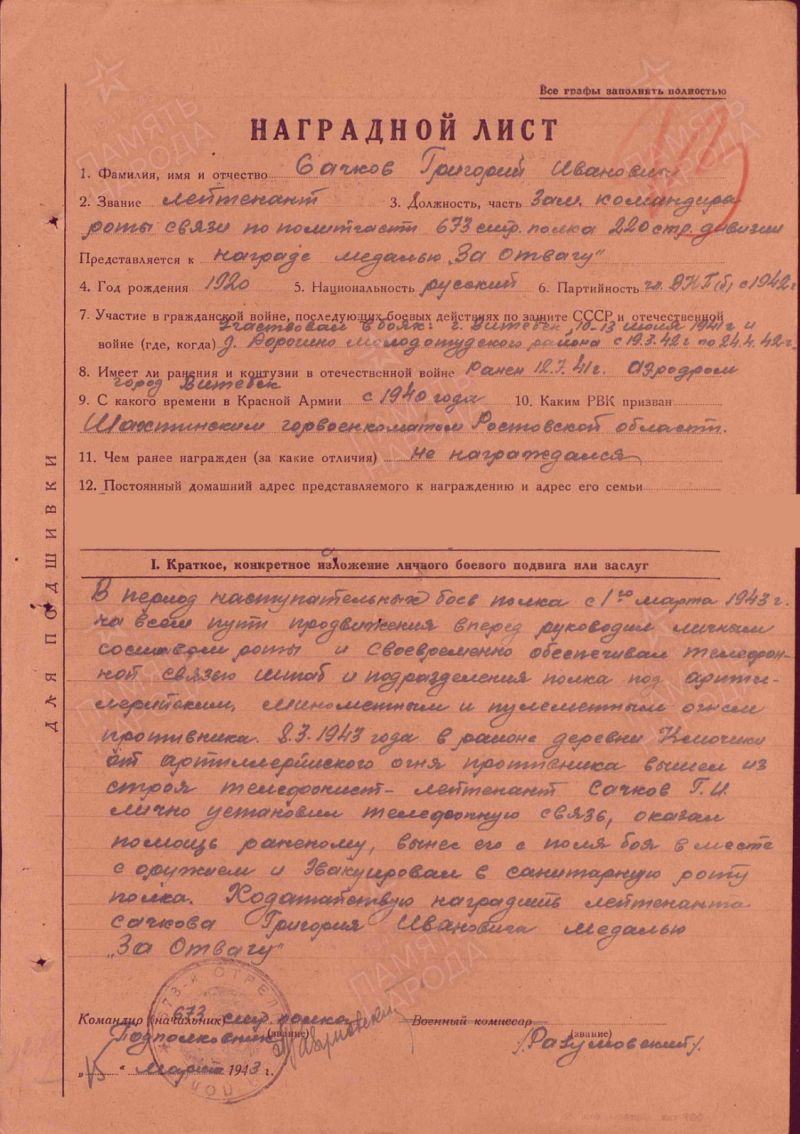 Все графы заполнять полностью
НАГРАДНОЙ ЛИСТ
1. Фамилия, имя и отчество Сачков Григорий Иванович
2. Звание лейтенант 3. Должность, часть Зам. командира
роты связи по политчасти 673 стр. полка 220 стр. дивизии
Представляется к награде медалью „За Отвагу"
4. Год рождения 1920 5. Национальность русский 6. Партийность чл. ВКП(б) с 1942 г
7. Участие в гражданской войне, последующих боевых действиях по защите СССР и отечественной
Участвовал в боях: г. Витебск, 10-13 июля 1941 г и
войне (где, когда) д. Дорогино Молодотудского района с 19.3.42 г по 24.4.42 г.
8. Имеет ли ранения и контузии в отечественной войне Ранен 12.7.41 г. Аэродром
город Витебск
9. С какого времени в Красной Армии с 1940 года 10. Каким РВК призван
Шахтинским горвоенкоматом Ростовской области.
11. Чем ранее награжден (за какие отличия) не награждался
12. Постоянный домашний адрес представляемого к награждению и адрес его семьи
I. Краткое, конкретное изложение личного боевого подвига или заслуг
В период наступательных боев полка с 1го марта 1943 г.
на всем пути продвижения вперед руководил личным
составом роты и своевременно обеспечивал телефон-
ной связью штаб и подразделения полка под артил-
лерийским, минометным и пулеметным огнем
противника. 8.3.1943 года в районе деревни
от артиллерийского огня противника вышел из
строя телефонист - лейтенант Сачков Г.И.
лично установил телефонную связь, оказал
помощь раненому, вынес его с поля боя вместе
с оружием и эвакуировал в санитарную роту
полка. Ходатайствую наградить лейтенанта
Сачкова Григория Ивановича медалью
„За Отвагу"
Командир (начальник) 673 стр. полка Военный комиссар
Подполковник (звание) (звание)
/Разумовский/
„15" марта 1943 г.
ДЛЯ ПОДШИВКИ
ПАМЯТЬ НАРОДА